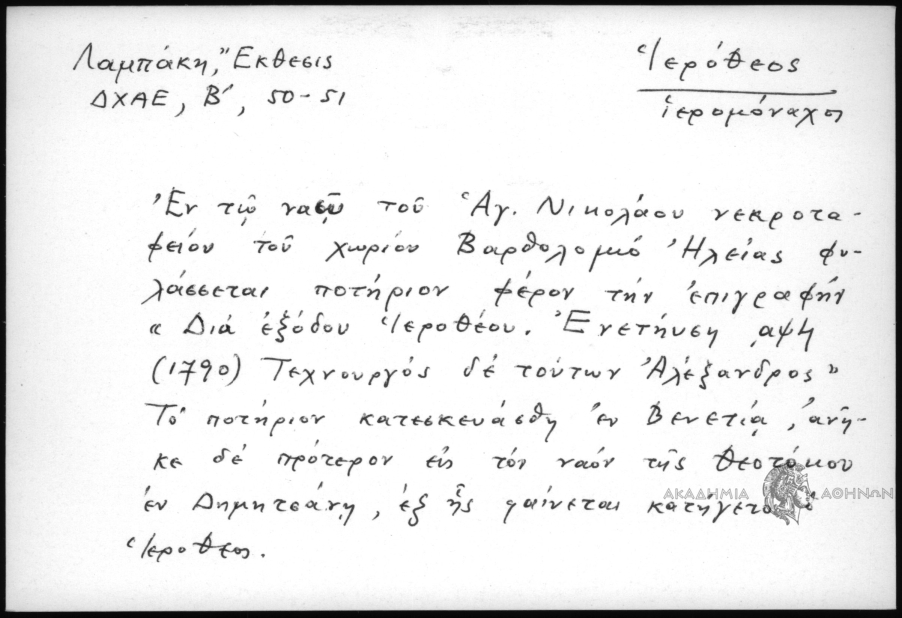 Λαμπάκη, Ἔκθεσις
ΔΧΑΕ, Β´, 50-51
Ἱερόθεος
ἱερομόναχος
Ἐν τῷ ναῷ τοῦ Ἁγ. Νικολάου νεκροτα-
φείου τοῦ χωρίου Βαρθολομιό Ἠλείας φυ-
λάσσεται ποτήριον φέρον τήν ἐπιγραφήν
« Διά ἐξόδου Ἱεροθέου. Ἐνετήησῃ ͵αψϟ
(1790) Τεχνουργός δέ τούτων Ἀλέξανδρος »
Τό ποτήριον κατεσκευάσθη ἐν Βενετίᾳ, ἀνῆ-
κε δέ πρότερον εἰς τόν ναόν τῆς Θεοτόκου
ἐν Δημητσάνῃ, ἐξ ἧς φαίνεται κατήγετο ὁ
Ἱερόθεος.
ΑΚΑΔΗΜΙΑ ΑΘΗΝΩΝ